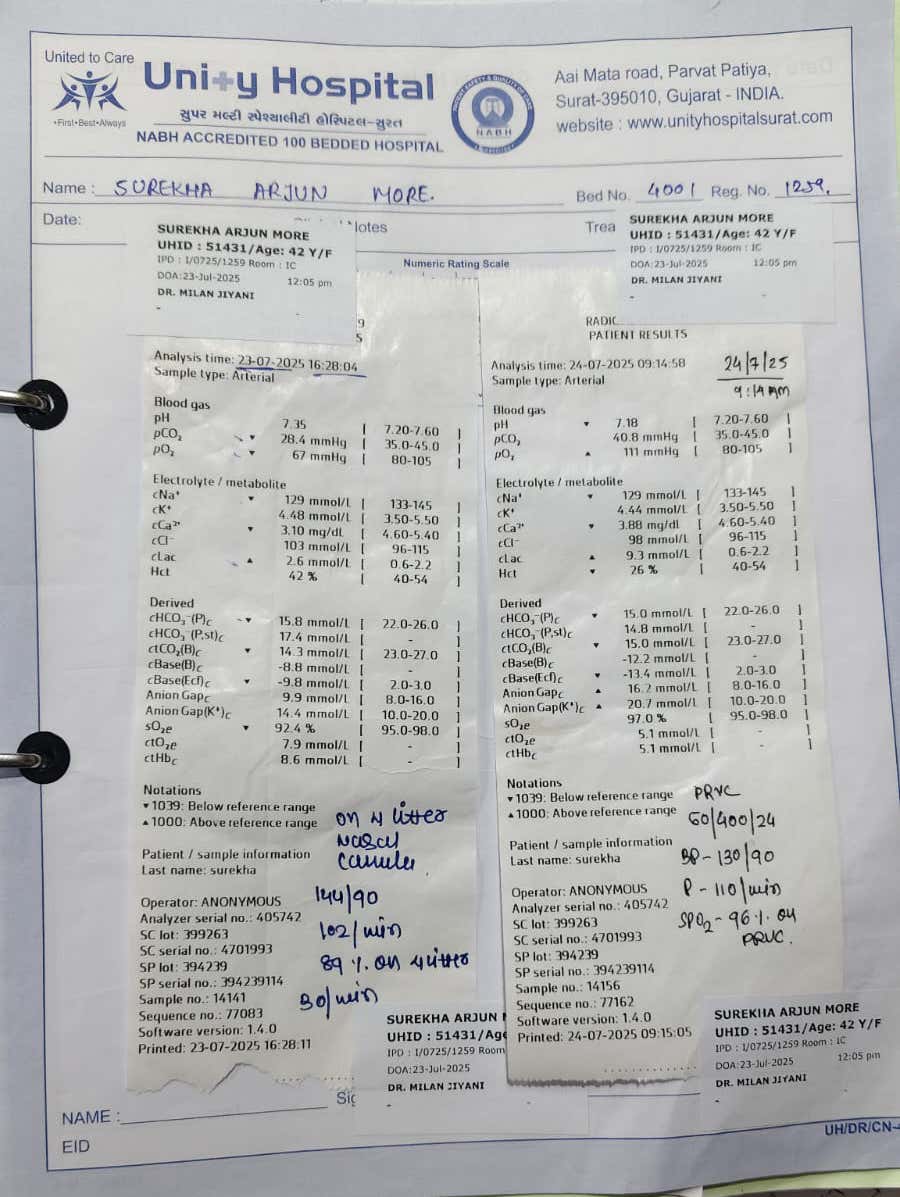 United to Care
•First•Best•Always
Unity Hospital
સુપર મલ્ટી સ્પેશ્યાલીટી હોસ્પિટલ-સુરત
NABH ACCREDITED 100 BEDDED HOSPITAL
NABH
Aai Mata road, Parvat Patiya,
Surat-395010, Gujarat - INDIA.
website : www.unityhospitalsurat.com
Name : SUREKHA ARJUN MORE. Bed No. 4001 Reg. No. 1259.
Date:
Notes
Trea
SUREKHA ARJUN MORE
UHID : 51431/Age: 42 Y/F
IPD : I/0725/1259 Room : IC
DOA:23-Jul-2025 12:05 pm
DR. MILAN JIYANI
-
SUREKHA ARJUN MORE
UHID : 51431/Age: 42 Y/F
IPD : I/0725/1259 Room : IC
DOA:23-Jul-2025 12:05 pm
DR. MILAN JIYANI
-
Numeric Rating Scale
9
S
Analysis time: 23-07-2025 16:28:04
Sample type: Arterial
Blood gas
pH 7.35 [ 7.20-7.60 ]
pCO₂ ▼ 28.4 mmHg [ 35.0-45.0 ]
pO₂ ▼ 67 mmHg [ 80-105 ]
Electrolyte / metabolite
cNa⁺ ▼ 129 mmol/L [ 133-145 ]
cK⁺ 4.48 mmol/L [ 3.50-5.50 ]
cCa²⁺ ▼ 3.10 mg/dL [ 4.60-5.40 ]
cCl⁻ 103 mmol/L [ 96-115 ]
cLac ▲ 2.6 mmol/L [ 0.6-2.2 ]
Hct 42 % [ 40-54 ]
Derived
cHCO₃⁻(P)c ▼ 15.8 mmol/L [ 22.0-26.0 ]
cHCO₃⁻(P,st)c 17.4 mmol/L [ - ]
ctCO₂(B)c ▼ 14.3 mmol/L [ 23.0-27.0 ]
cBase(B)c -8.8 mmol/L [ - ]
cBase(Ecf)c ▼ -9.8 mmol/L [ 2.0-3.0 ]
Anion Gapc 9.9 mmol/L [ 8.0-16.0 ]
Anion Gap(K⁺)c 14.4 mmol/L [ 10.0-20.0 ]
sO₂e ▼ 92.4 % [ 95.0-98.0 ]
ctO₂e 7.9 mmol/L [ - ]
ctHbc 8.6 mmol/L [ - ]
Notations
▼ 1039: Below reference range
▲ 1000: Above reference range
on 4 litter
nasal
canula
Patient / sample information
Last name: surekha
Operator: ANONYMOUS
Analyzer serial no.: 405742
SC lot: 399263
SC serial no.: 4701993
SP lot: 394239
SP serial no.: 394239114
Sample no.: 14141
Sequence no.: 77083
Software version: 1.4.0
Printed: 23-07-2025 16:28:11
144/90
102/min
89 % on 4 litter
30/min
RADIC
PATIENT RESULTS
Analysis time: 24-07-2025 09:14:58
Sample type: Arterial
24/7/25
9:14 AM
Blood gas
pH ▼ 7.18 [ 7.20-7.60 ]
pCO₂ 40.8 mmHg [ 35.0-45.0 ]
pO₂ ▲ 111 mmHg [ 80-105 ]
Electrolyte / metabolite
cNa⁺ ▼ 129 mmol/L [ 133-145 ]
cK⁺ 4.44 mmol/L [ 3.50-5.50 ]
cCa²⁺ ▼ 3.88 mg/dL [ 4.60-5.40 ]
cCl⁻ 98 mmol/L [ 96-115 ]
cLac ▲ 9.3 mmol/L [ 0.6-2.2 ]
Hct ▼ 26 % [ 40-54 ]
Derived
cHCO₃⁻(P)c ▼ 15.0 mmol/L [ 22.0-26.0 ]
cHCO₃⁻(P,st)c 14.8 mmol/L [ - ]
ctCO₂(B)c ▼ 15.0 mmol/L [ 23.0-27.0 ]
cBase(B)c -12.2 mmol/L [ - ]
cBase(Ecf)c ▼ -13.4 mmol/L [ 2.0-3.0 ]
Anion Gapc ▲ 16.2 mmol/L [ 8.0-16.0 ]
Anion Gap(K⁺)c ▲ 20.7 mmol/L [ 10.0-20.0 ]
sO₂e 97.0 % [ 95.0-98.0 ]
ctO₂e 5.1 mmol/L [ - ]
ctHbc 5.1 mmol/L [ - ]
Notations
▼ 1039: Below reference range
▲ 1000: Above reference range
PRVC
60/400/24
BP - 130/90
P - 110/min
SPO₂ - 96 % on
PRVC.
Patient / sample information
Last name: surekha
Operator: ANONYMOUS
Analyzer serial no.: 405742
SC lot: 399263
SC serial no.: 4701993
SP lot: 394239
SP serial no.: 394239114
Sample no.: 14156
Sequence no.: 77162
Software version: 1.4.0
Printed: 24-07-2025 09:15:05
SUREKHA ARJUN M
UHID : 51431/Age
IPD : I/0725/1259 Room
DOA:23-Jul-2025
DR. MILAN JIYANI
-
SUREKHA ARJUN MORE
UHID : 51431/Age: 42 Y/F
IPD : I/0725/1259 Room : IC
DOA:23-Jul-2025 12:05 pm
DR. MILAN JIYANI
-
NAME :
Sig
EID
UH/DR/CN-